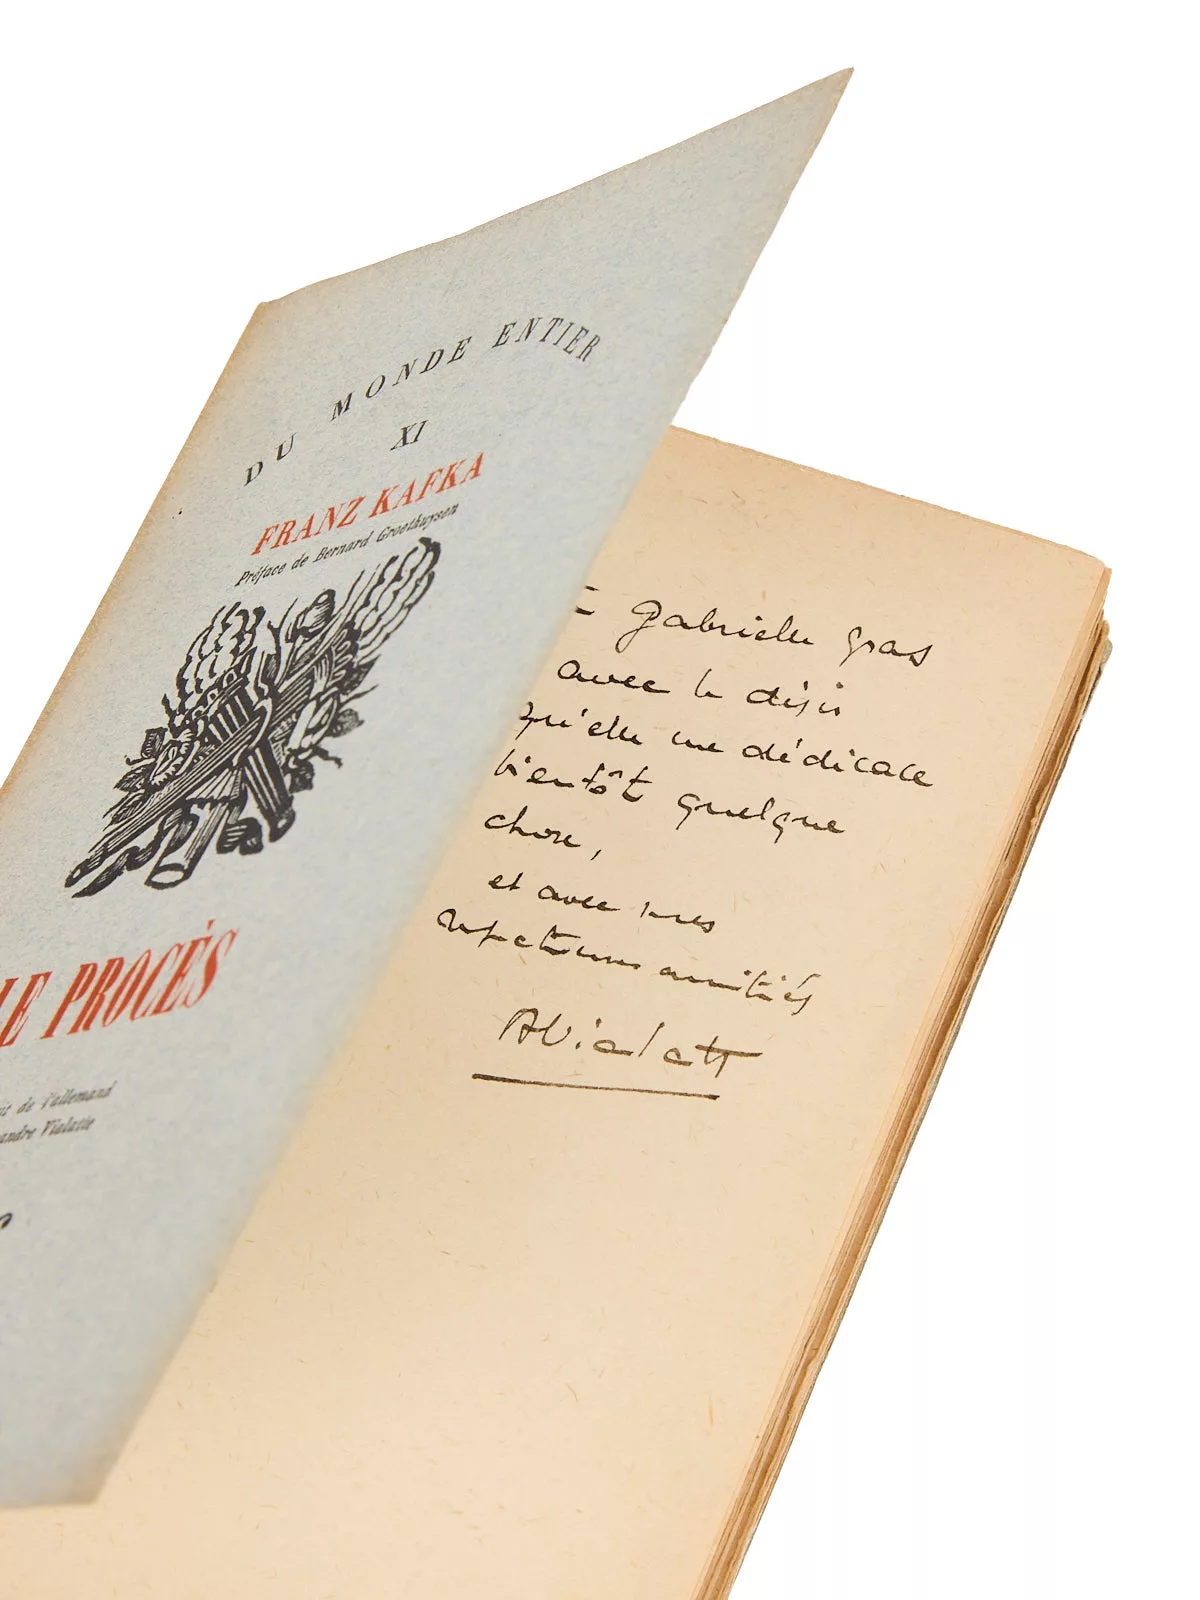 DU MONDE ENTIER
XI
FRANZ KAFKA
Préface de Bernard Groethuysen
LE PROCÈS
de l'allemand
Vialatte
Gabrielle Gras
avec le désir
qu'elle me dédicace
bientôt quelque
chose,
et avec mes
respectueuses amitiés
AVialatte